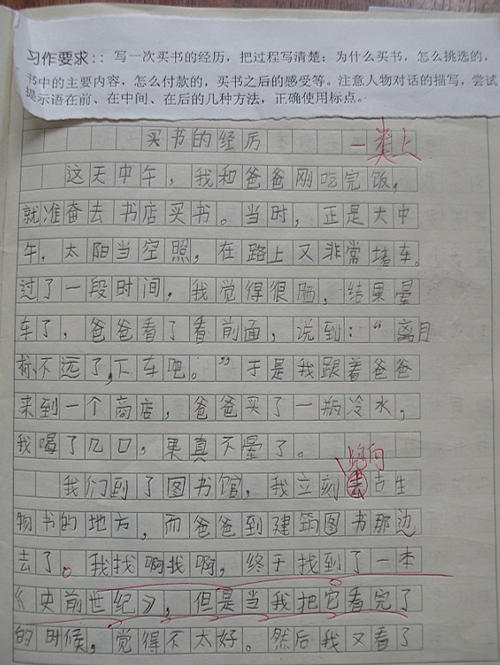 习作要求：：写一次买书的经历，把过程写清楚：为什么买书，怎么挑选的，
书中的主要内容，怎么付款的，买书之后的感受等。注意人物对话的描写，尝试
提示语在前、在中间、在后的几种方法，正确使用标点。
买书的经历
一类上
这天中午，我和爸爸刚吃完饭，
就准备去书店买书。当时，正是大中
午，太阳当空照，在路上又非常堵车。
过了一段时间，我觉得很晒，结果晕
车了，爸爸看了看前面，说到：“离目
标不远了，下车吧。”于是我跟着爸爸
来到一个商店，爸爸买了一瓶冷水，
我喝了几口，果真不晕了。
我们到了图书馆，我立刻去古生
物书的地方，而爸爸到建筑图书那边
去了。我找啊找啊，终于找到了一本
《史前世纪》，但是当我把它看完了
的时候，觉得不太好。然后我又看了